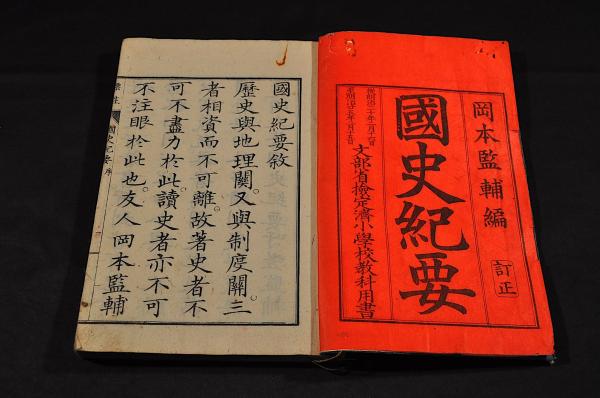 岡本監輔編
訂正
國史紀要
文部省撿定濟小學校教科用書
國史紀要敘
歷史與地理關。又與制度關。三
者相資而不可離。故著史者不
可不盡力於此。讀史者亦不可
不注眼於此也。友人岡本監輔
國史紀要序